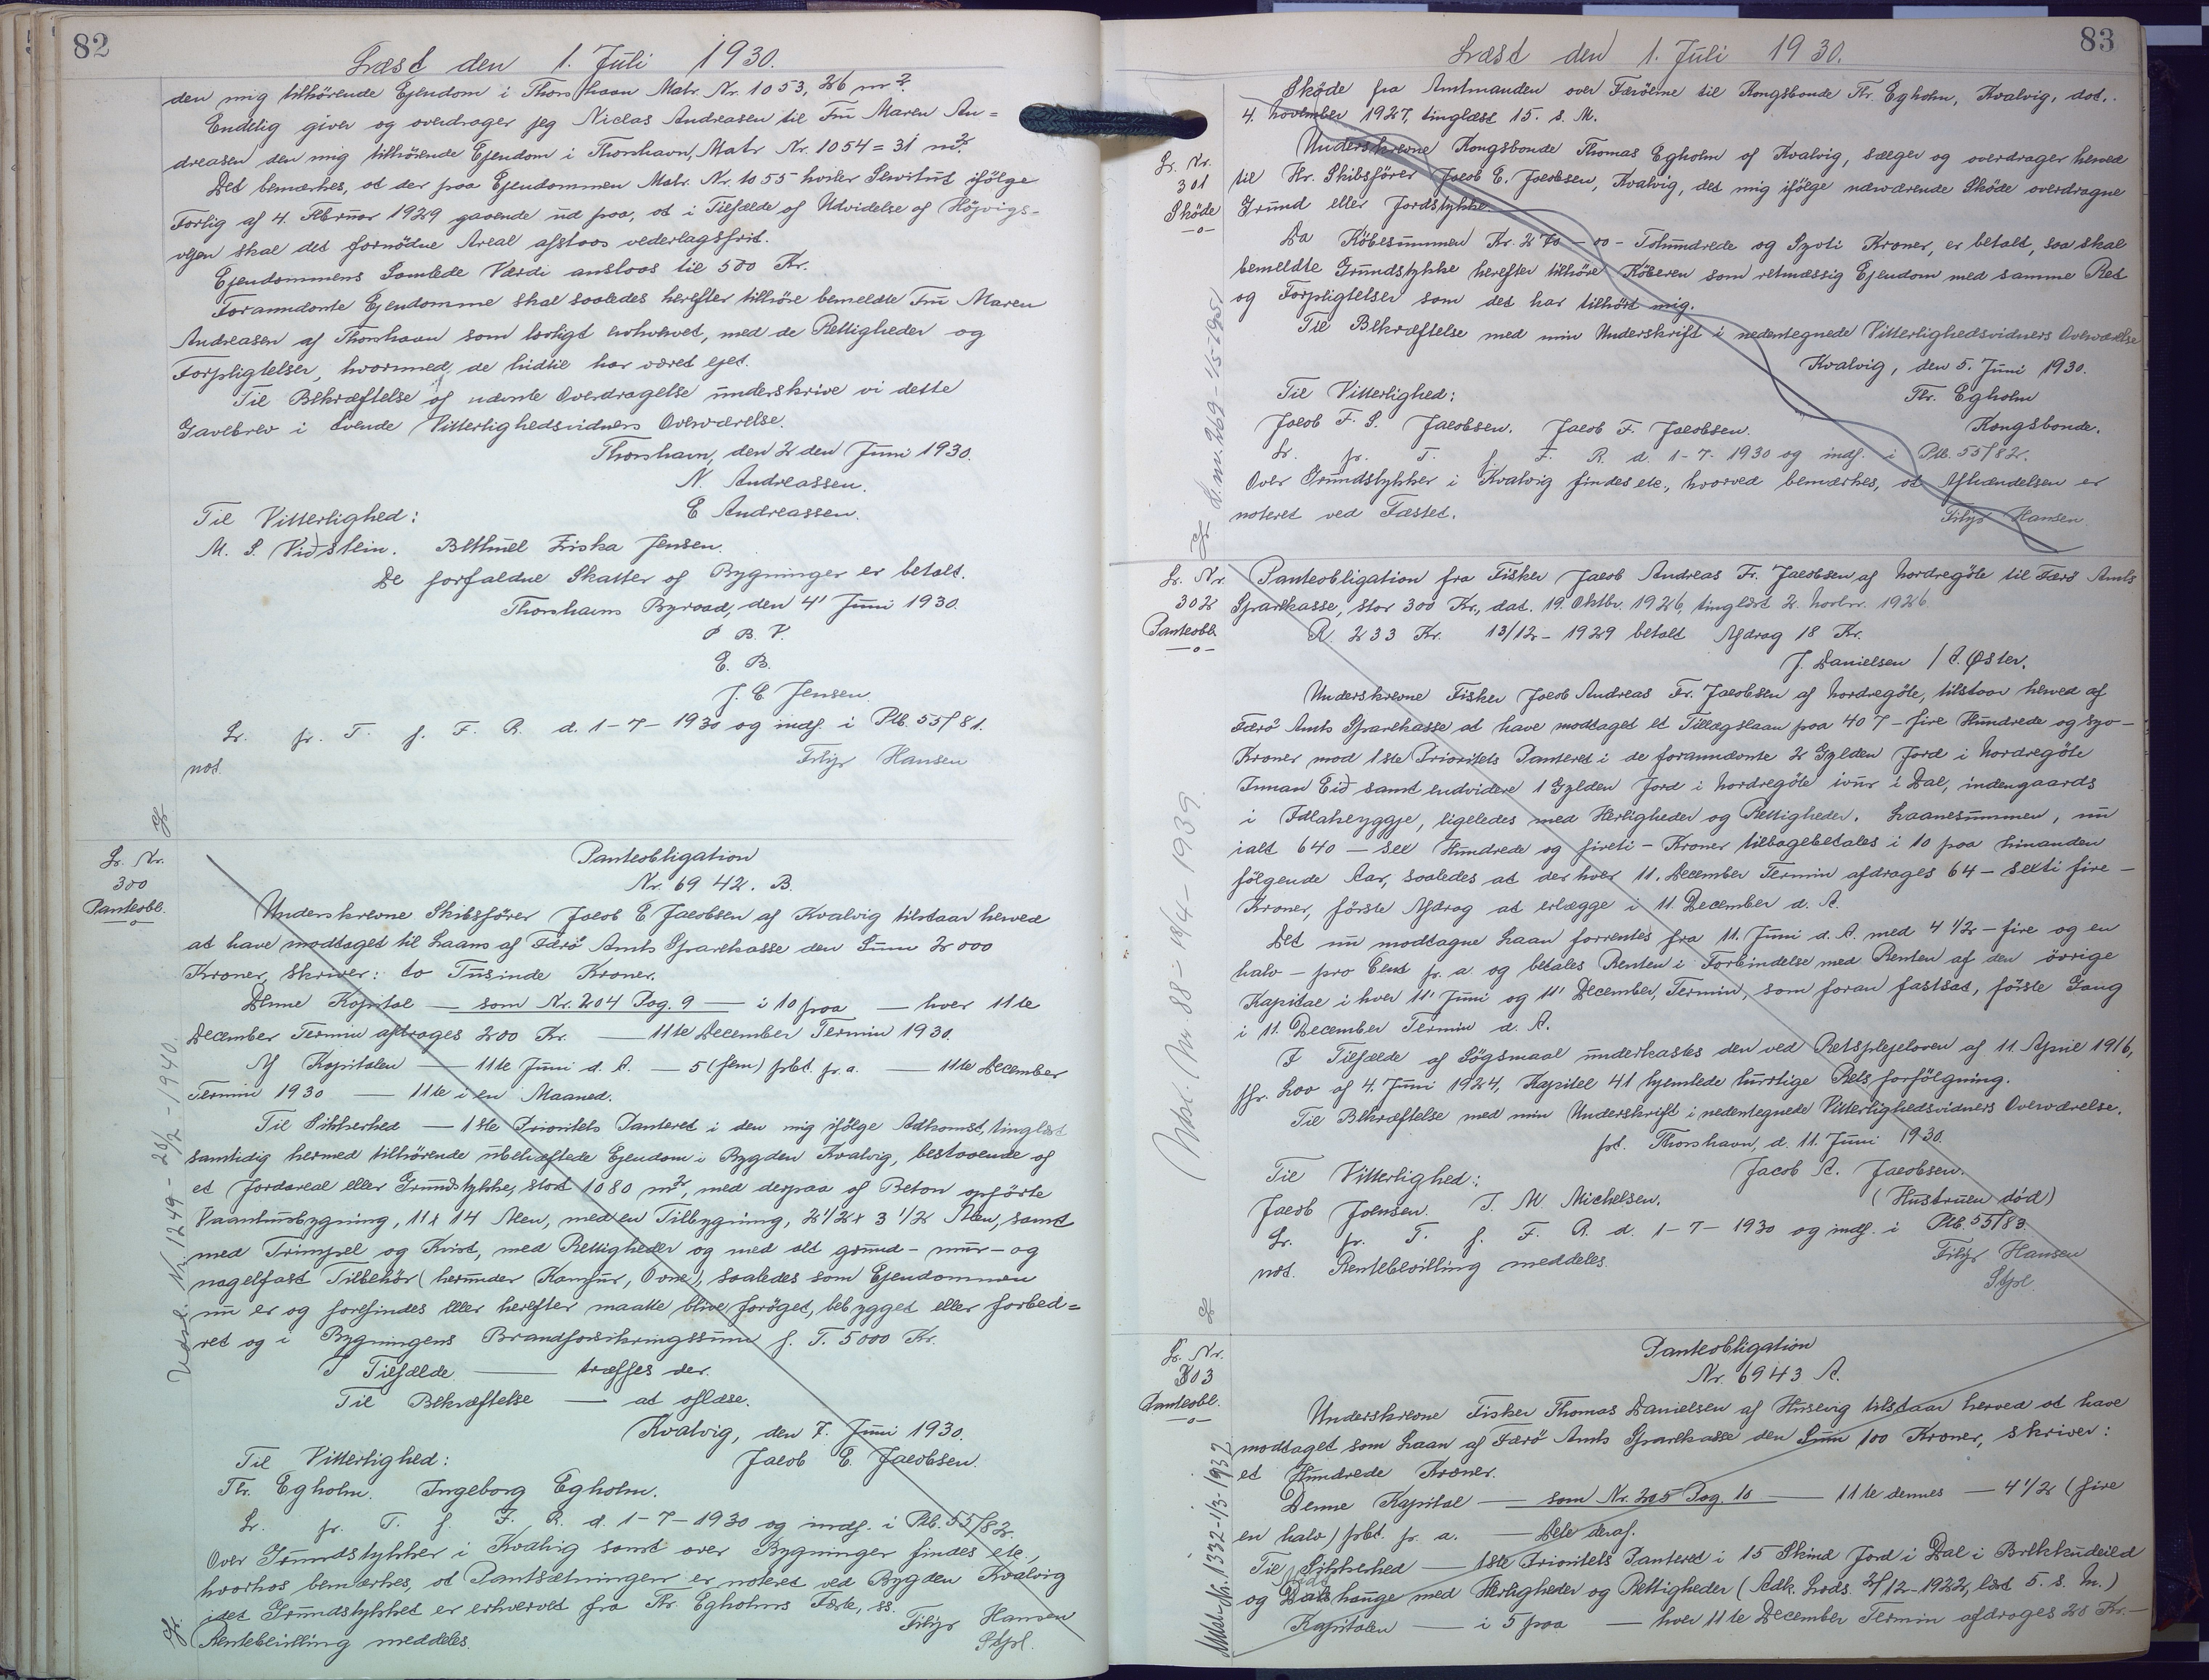 82
Læst den 1. Juli 1930.
den mig tilhørende Ejendom i Thorshavn Matr. Nr. 1053, 26 m².
Endelig giver og overdrager jeg Niclas Andreasen til Fru Maren An=
dreasen den mig tilhörende Ejendom i Thorshavn, Matr. Nr. 1054 = 31 m².
Det bemærkes, at der paa Ejendommen Matr. Nr. 1055 hviler Servitut ifölge
Forlig af 4. Februar 1929 gaaende ud paa, at i Tilfælde af Udvidelse af Höjvigs-
vejen skal det fornödne Areal afstaas vederlagsfrit.
Ejendommens Samlede Værdi anslaas til 500 Kr.
Forannævnte Ejendomme skal saaledes herefter tilhöre bemeldte Fru Maren
Andreasen af Thorshavn som lovligt erhvervet, med de Rettigheder og
Forpligtelser, hvormed de hidtil har været ejet.
Til Bekræftelse af nævnte Overdragelse underskrive vi dette
Gavebrev i tvende Vitterlighedsvidners Overværelse.
Thorshavn, den 2 den Juni 1930.
N. Andreassen.
E Andreassen.
Til Vitterlighed:
M. S. Viðstein. Bethuel Friska Jensen.
De forfaldne Skatter af Bygninger er betalt.
Thorshavns Byraad, den 4' Juni 1930.
P. B. V.
E. B.
J. C. Jensen
Lr. fr. T. f. F. R. d. 1-7-1930 og indf. i Ptb. 55/81.
not. Filip Hansen
Lr. Nr.
300
Panteobl.
Vidse. Nr. 1249 - 28/2 - 1940.
Panteobligation
Nr. 6942. B.
Underskrevne Skibsförer Jacob E Jacobsen af Kvalvig tilstaar herved
at have modtaget til Laans af Færö Amts Sparekasse den Sum 2000
Kroner, skriver: to Tusinde Kroner.
Denne Kapital — som Nr. 204 Pag. 9 — i 10 paa — hver 11te
December Termin afdrages 200 Kr. — 11te December Termin 1930.
Af Kapitalen — 11te Juni d. A. — 5 (fem) pbt. p. a. — 11te December
Termin 1930 — 11te i en Maaned.
Til Sikkerhed — 1ste Prioritets Panteret i den mig ifölge Adkomst, tinglæst
samtidig hermed tilhørende ubehæftede Ejendom i Bygden Kvalvig, bestaaende af
et Jordareal eller Grundstykke, stort 1080 m², med derpaa af Beton opförte
Vaaningsbygning, 11 x 14 Alen, med en Tilbygning, 2½ x 3½ Alen, samt
med Trimpel og Kvist, med Rettigheder og med alt grund- mur- og
nagelfast Tilbehör (herunder Komfur, Ovne), saaledes som Ejendommen
nu er og forefindes eller herefter maatte blive foröget, bebygget eller forbed=
ret og i Bygningens Brandforsikringssum f. T. 5000 Kr.
I Tilfælde — træffes der.
Til Bekræftelse — at aflæse.
Kvalvig, den 7. Juni 1930.
Til Vitterlighed: Jacob E. Jacobsen.
Th. Egholm. Ingeborg Egholm.
Lr. fr. T. f. F. R. d. 1-7-1930 og indf. i Ptb. 55/82.
Over Grundstykker i Kvalvig samt over Bygninger findes etc,
hvorhos bemærkes, at Pantsætningen er noteret ved Bygden Kvalvig
idet Grundstykket er erhvervet fra Th. Egholms Fæste, ss.
Rentebevilling meddeles. Filip Hansen
Stpl.
83
Læst den 1. Juli 1930.
Sköde fra Amtmanden over Færöerne til Kongsbonde Th. Egholm, Kvalvig, dat.
4. November 1927, tinglæst 15. s. M.
Lr. Nr.
301
Sköde
Underskrevne Kongsbonde Thomas Egholm af Kvalvig, sælger og overdrager herved
til Hr. Skibsförer Jacob E. Jacobsen, Kvalvig, det mig ifölge nærværende Sköde overdragne
Grund eller Jordstykke.
Da Köbesummen Kr. 270-00 - Tohundrede og Syvti Kroner, er betalt, saa skal
bemeldte Grundstykke herefter tilhöre Köberen som retmæssig Ejendom med samme Ret
og Forpligtelser som det har tilhört mig.
Til Bekræftelse med min Underskrift i nedentegnede Vitterlighedsvidners Overværelse
Kvalvig, den 5. Juni 1930.
Til Vitterlighed: Th. Egholm
Jacob F. S. Jacobsen. Jacob F. Jacobsen. Kongsbonde.
Lr. fr. T. f. F. R. d. 1-7-1930 og indf. i Ptb. 55/82.
Over Grundstykker i Kvalvig findes etc., hvorved bemærkes, at Afhændelsen er
noteret ved Fæstet. Filip Hansen.
Lr. Nr.
302
Panteobl.
Panteobligation fra Fisker Jacob Andreas Fr. Jacobsen af Nordregöte til Færö Amts
Sparekasse, stor 300 Kr., dat. 19. Oktbr. 1926, tinglæst 2. Novbr. 1926.
R. 233 Kr. 13/12-1929 betalt Afdrag 18 Kr.
J. Danielsen / A. Øster.
Underskrevne Fisker Jacob Andreas Fr. Jacobsen af Nordregöte, tilstaar herved af
Færö Amts Sparekasse at have modtaget et Tillægslaan paa 407 - fire Hundrede og syv -
Kroner mod 1ste Prioritets Panteret i de forannævnte 2 Gylden Jord i Nordregöte
Innan Eið samt endvidere 1 Gylden Jord i Nordregöte ivur i Dal, indengaards
i Fdlaheyggje, ligeledes med Herligheder og Rettigheder. Laanesummen, nu
ialt 640 — sex Hundrede og fireti - Kroner tilbagebetales i 10 paa hinanden
fölgende Aar, saaledes at der hver 11. December Termin afdrages 64 - sexti fire -
Kroner, förste Afdrag at erlægge i 11. December d. A.
Det nu modtagne Laan forrentes fra 11. Juni d. A. med 4½ - fire og en
halv - pro Cent p. a. og betales Renten i Forbindelse med Renten af den övrige
Kapital i hver 11' Juni og 11' December, Termin, som foran fastsat, förste Gang
i 11. December Termin d. A.
I Tilfælde af Sögsmaal underkastes den ved Retsplejeloven af 11. April 1916,
jfr. Lov af 4. Juni 1924, Kapitel 41 hjemlede hurtige Retsforfölgning.
Til Bekræftelse med min Underskrift i nedentegnede Vitterlighedsvidners Overværelse.
pt. Thorshavn, d. 11. Juni 1930.
Til Vitterlighed: Jacob A. Jacobsen.
Jacob Joensen. T. M. Michelsen. (Hustruen död)
Lr. fr. T. f. F. R. d. 1-7-1930 og indf. i Ptb. 55/83.
not. Rentebevilling meddeles. Filip Hansen
Stpl.
Lr. Nr.
303
Panteobl.
Panteobligation
Nr. 6943 A.
Underskrevne Fisker Thomas Danielsen af Husevig tilstaar herved at have
modtaget som Laan af Færö Amts Sparekasse den Sum 100 Kroner, skriver:
et Hundrede Kroner.
Denne Kapital — som Nr. 205 Pag. 10 — 11te dennes — 4½ (fire
en halv) pbt. p. a. — Dele deraf.
Til Sikkerhed — 1ste Prioritets Panteret i 15 Skind Jord i Dal i
og hauge med Herligheder og Rettigheder (Adk. Lods. 2/12-1922, læst 5. s. M.)
Kapitalen — i 5 paa — hver 11te December Termin afdrages 20 Kr. -